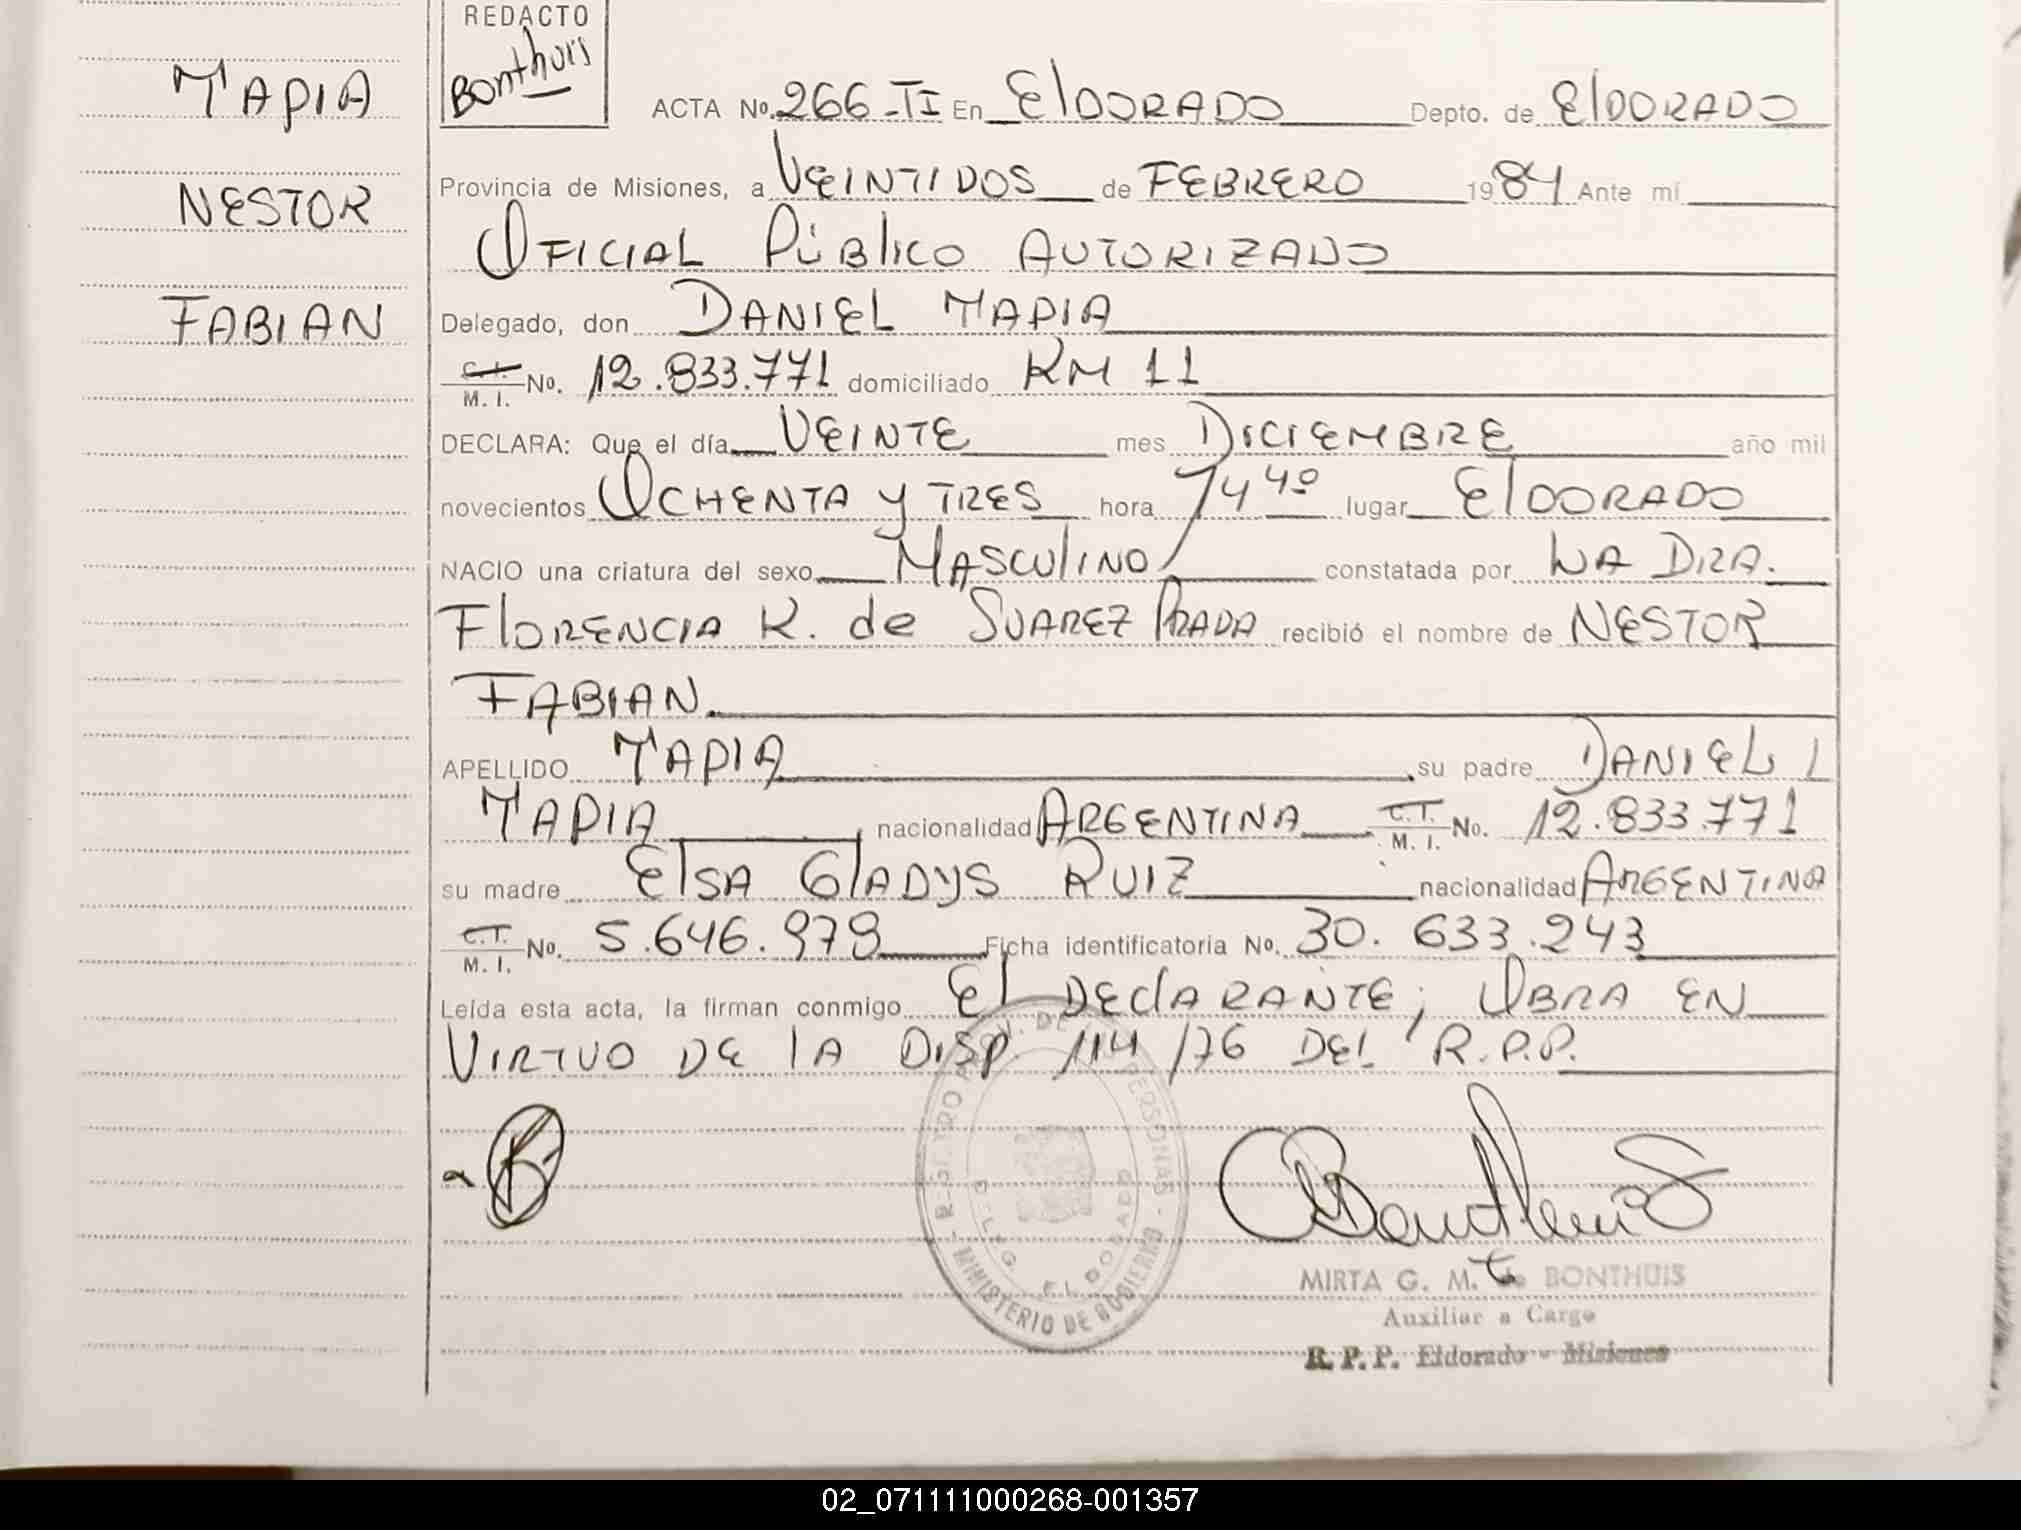 REDACTO
Bonthuis
TAPIA
NESTOR
FABIAN
ACTA No. 266-TI En ElDORADO Depto. de ElDORADO
Provincia de Misiones, a VEINTIDOS de FEBRERO 1984 Ante mí
OFICIAL PÚBlICO AUTORIZADO
Delegado, don DANIEL TAPIA
C.I. M. I. No. 12.833.771 domiciliado KM 11
DECLARA: Que el día VEINTE mes DICIEMBRE año mil
novecientos OCHENTA y TRES hora 14 40 lugar ElDORADO
NACIO una criatura del sexo MASCUlINO constatada por LA DRA.
FlORENCIA K. de SUAREZ PRADA recibió el nombre de NESTOR
FABIAN
APELLIDO TAPIA su padre DANIEL
TAPIA nacionalidad ARGENTINA C.I. M. I. No. 12.833.771
su madre ElSA GlADYS RUIZ nacionalidad ARGENTINA
C.I. M. I. No. 5.646.979 Ficha identificatoria No. 30.633.243
Leída esta acta, la firman conmigo El DEClARANTE; OBRA EN
VIRTUD DE lA DISP. 114/76 DEL R.P.P.
REGISTRO PROV. DE PERSONAS - MINISTERIO DE GOBIERNO
DELEG. ELDORADO
Bonthuis
MIRTA G. M. de BONTHUIS
Auxiliar a Cargo
R. P. P. Eldorado - Misiones
02_071111000268-001357